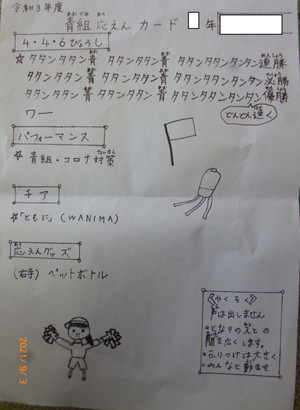 令和3年度
青組応えんカード 年
4・4・6ひょうし
☆ タタンタタン青 タタンタタン青 タタンタンタン連勝
タタンタタン青 タタンタタン青 タタンタンタン必勝
タタンタタン青 タタンタタン青 タタンタンタンタン優勝
ワー
だんだん速く
パフォーマンス
☆ 青組・コロナ対策
チア
☆「ともに」(WANIMA)
応えんグッズ
(右手) ペットボトル
《やくそく》
声は出しません
・となりの人との
間を広くします。
・ふりつけは大きく
・みんなと動きを
2021/9/3